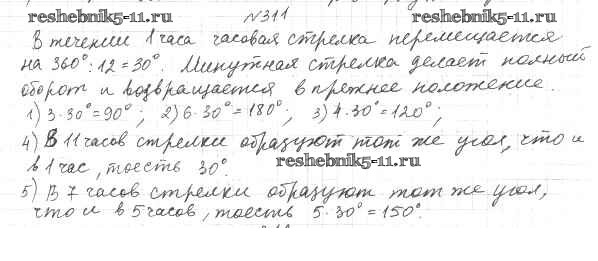 reshebnik5-11.ru №311 reshebnik5-11.ru
В течении 1 часа часовая стрелка перемещается
на 360°:12=30°. Минутная стрелка делает полный
оборот и возвращается в прежнее положение.
1) 3·30°=90°; 2) 6·30°=180°; 3) 4·30°=120°;
4) В 11 часов стрелки образуют тот же угол, что и
в 1 час, тоесть 30°. reshebnik5-11.ru
5) В 7 часов стрелки образуют тот же угол,
что и в 5 часов, тоесть 5·30°=150°.